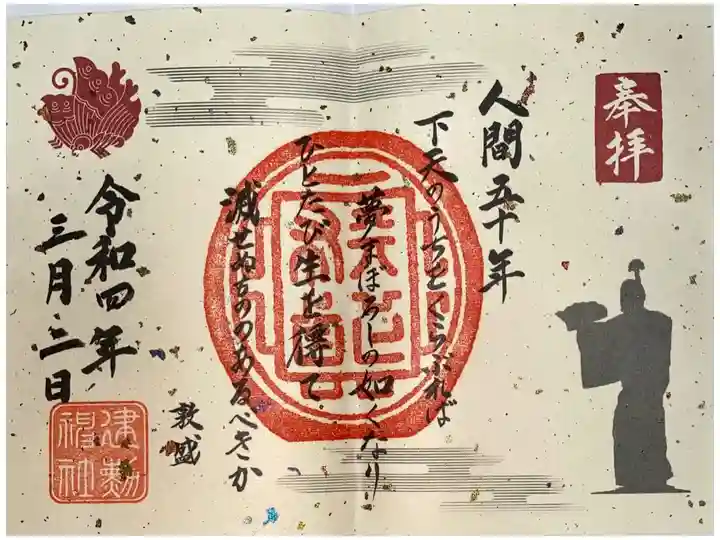 奉拝
人間五十年
下天のうちをくらぶれば
夢まぼろしの如くなり
ひとたび生を得て
滅せぬものゝあるべきか
敦盛
令和四年
三月三日
建勲
神社